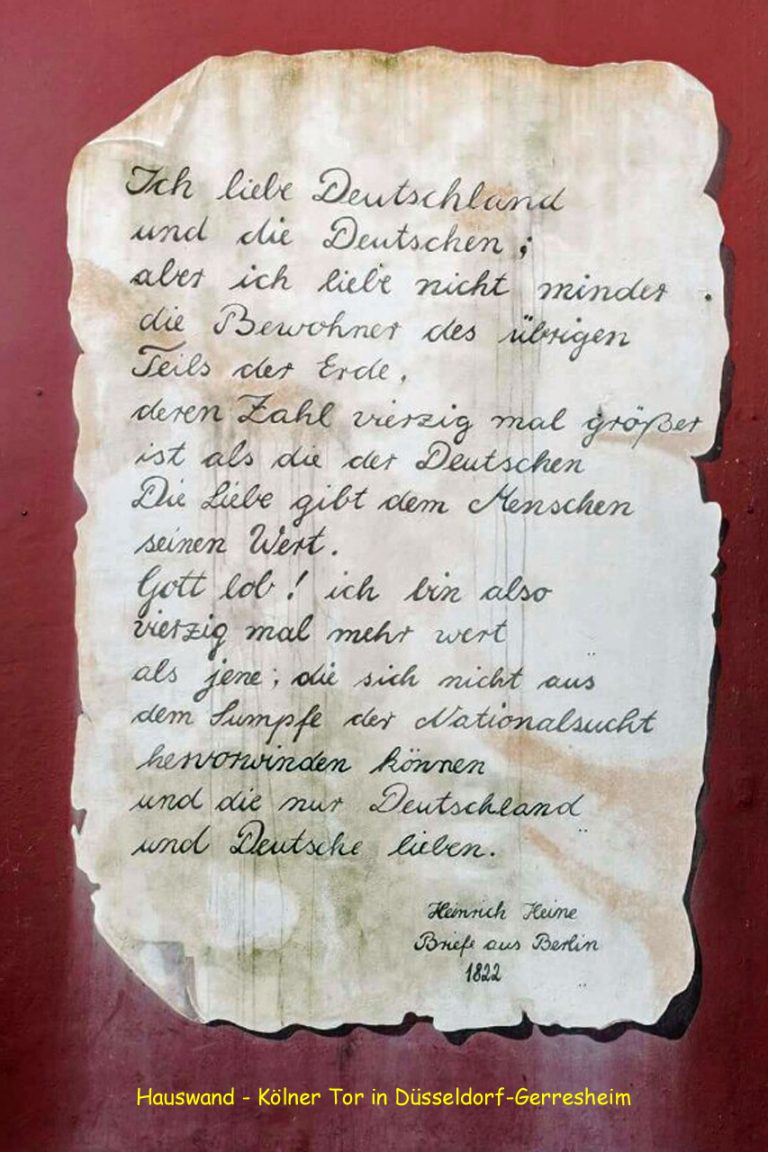 Ich liebe Deutschland
und die Deutschen;
aber ich liebe nicht minder
die Bewohner des übrigen
Teils der Erde,
deren Zahl vierzig mal größer
ist als die der Deutschen
Die Liebe gibt dem Menschen
seinen Wert.
Gott lob! ich bin also
vierzig mal mehr wert
als jene; die sich nicht aus
dem Sumpfe der Nationalsucht
hervorwinden können
und die nur Deutschland
und Deutsche lieben.
Heinrich Heine
Briefe aus Berlin
1822
Hauswand - Kölner Tor in Düsseldorf-Gerresheim